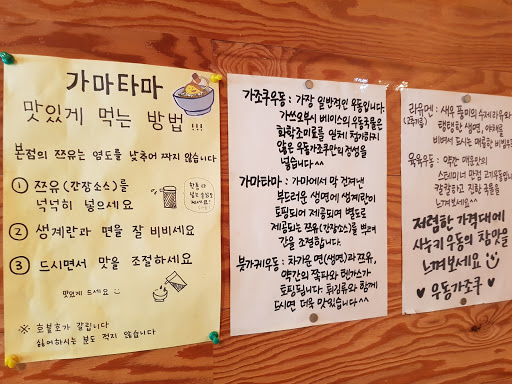 가마타마
맛있게 먹는 방법!!!
본점의 쯔유는 염도를 낮추어 짜지 않습니다
① 쯔유(간장소스)를
넉넉히 넣으세요
② 생계란과 면을 잘 비비세요
③ 드시면서 맛을 조절하세요
맛있게 드세요
※ 호불호가 갈립니다
싫어하시는 분도 적지 않습니다
가조쿠우동 : 가장 일반적인 우동입니다.
가쓰오부시 베이스의 우동국물은
화학조미료를 일체 첨가하지
않은 우동가조쿠만의 정성을
넣습니다^^
가마타마 : 가마에서 막 건져낸
부드러운 생면에 생계란이
토핑되어 제공되며 별도로
제공되는 쯔유(간장소스)를 뿌려
간을 조절합니다.
붓가케우동 : 차가운 면(생면)과 쯔유,
약간의 쪽파와 텐가스가
토핑됩니다. 튀김류와 함께
드시면 더욱 맛있습니다^^
라유멘 : 새우 풍미의 수제 라유와
탱탱한 생면, 야채를
비벼서 드시는 매콤한 비빔
육육우동 : 약간 매운맛의
스테미너 만점 고기우동입니다
칼칼하고 진한 국물을
느껴보세요^^
저렴한 가격대에
사누키우동의 참맛을
느껴보세요
우동가조쿠